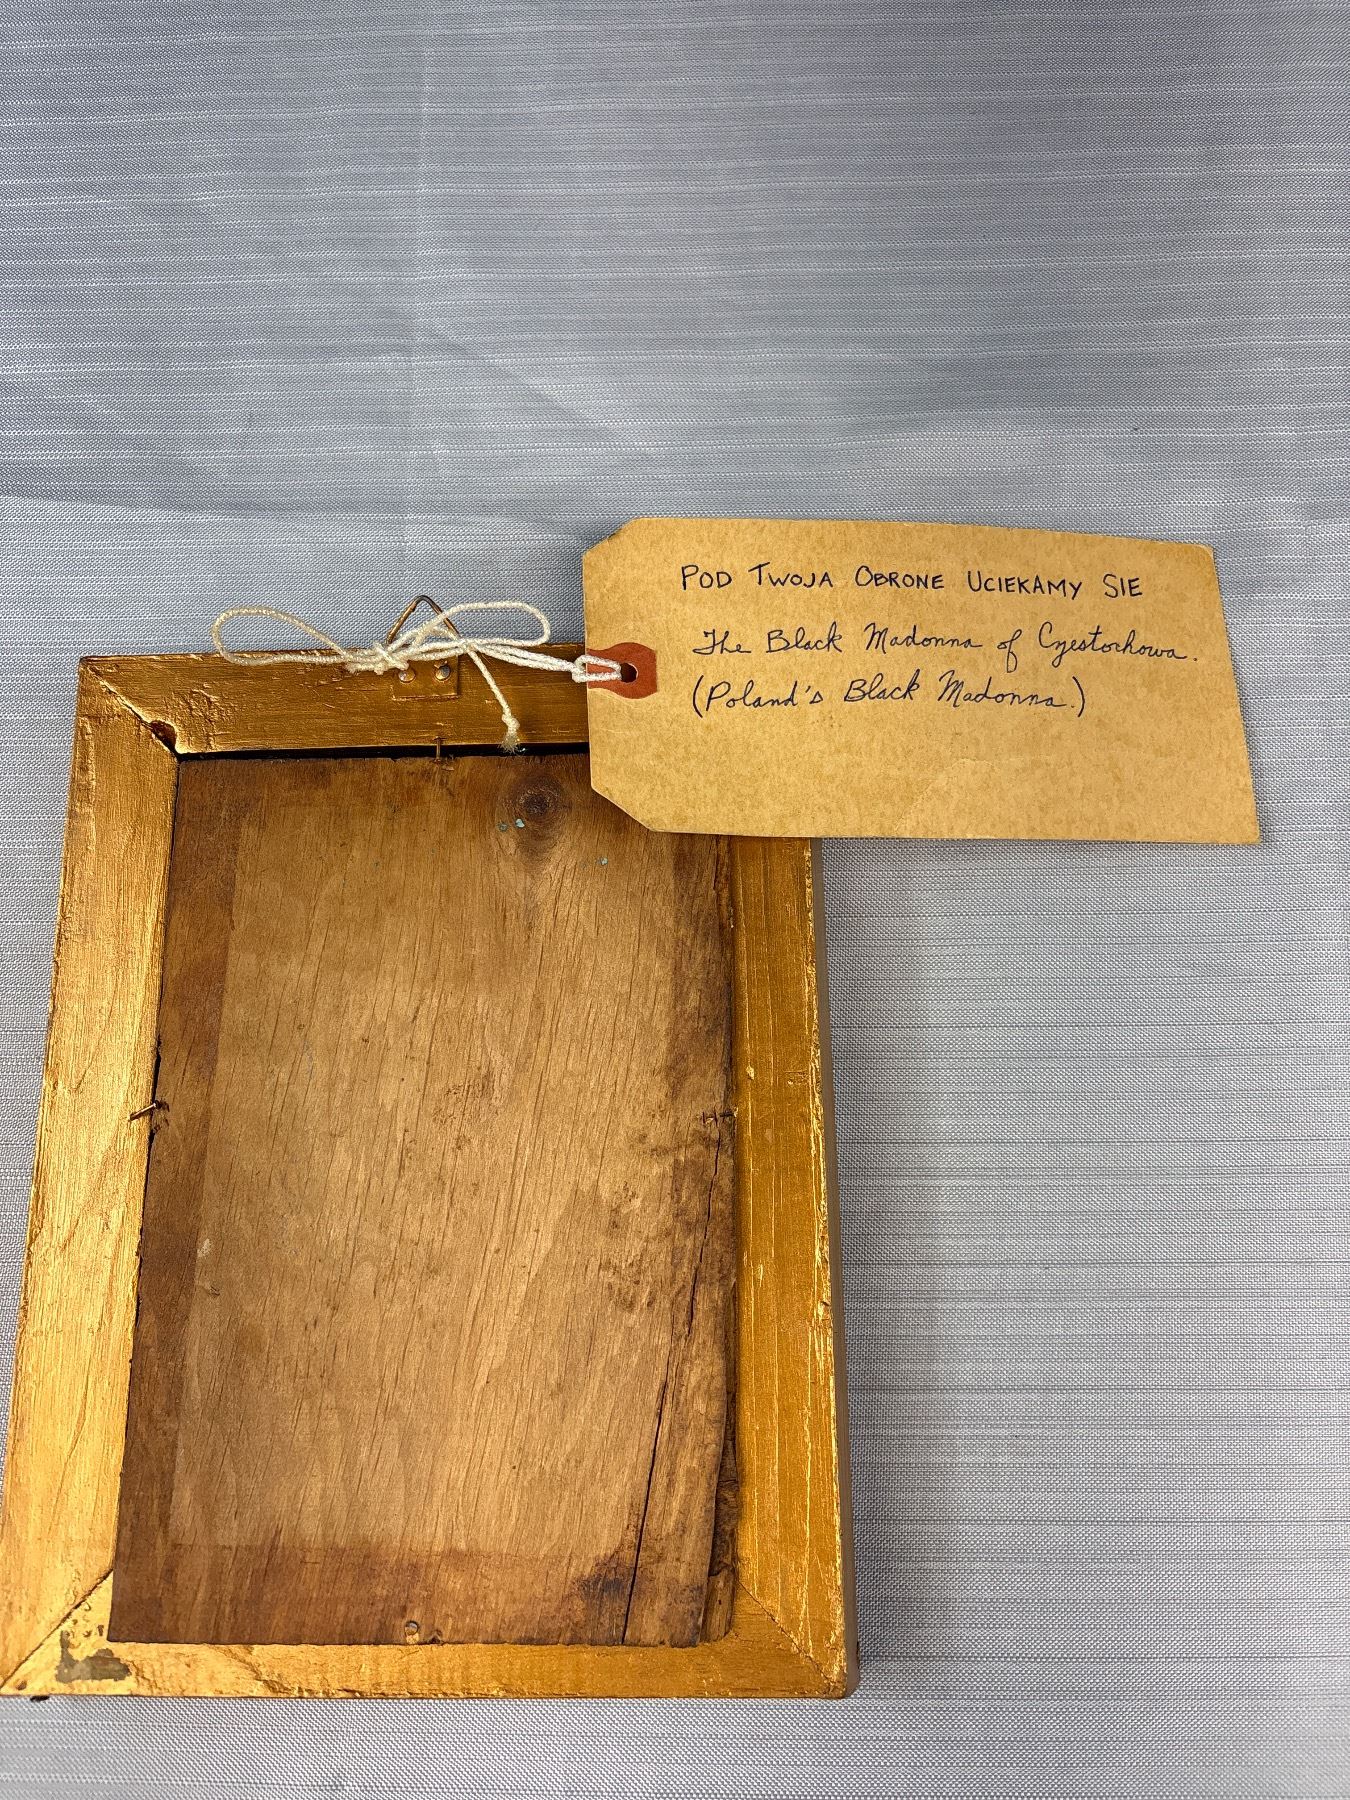 POD TWOJA OBRONE UCIEKAMY SIE
The Black Madonna of Czestochowa.
(Poland's Black Madonna.)